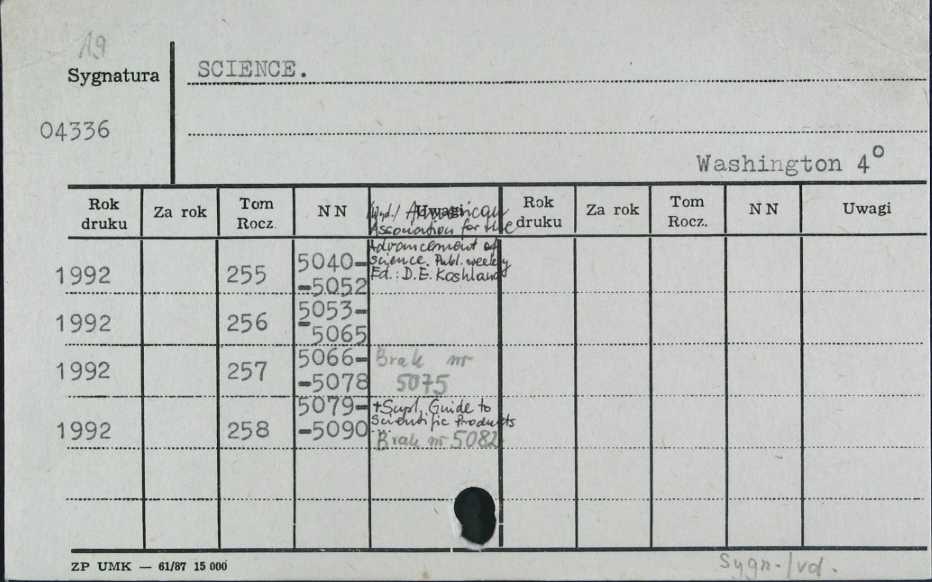 19
Sygnatura
SCIENCE.
04336
Washington 4°
Rok druku Za rok Tom Rocz. NN Uwagi Rok druku Za rok Tom Rocz. NN Uwagi
Wyd./ American
Association for the
Advancement of
Science. Publ. weekly
Ed.: D.E. Koshland
1992 255 5040-
-5052
1992 256 5053-
-5065
1992 257 5066- Brak nr
-5078 5075
1992 258 5079- +Supl. Guide to
Scientific Products
-5090 Brak nr 5082
ZP UMK — 61/87 15 000
Sygn. /vd.